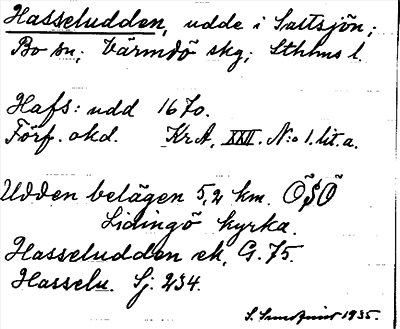 Hasseludden, udde i Saltsjön;
Bo sn; Värmdö skg; Sthlms l.
Hafs: udd 1670.
Förf. okd. Kr A, XXII. N:o 1. lit. a.
Udden belägen 5,2 km. ÖSÖ
Lidingö kyrka.
Hasseludden ek, G. 75.
Hasselu. Sj. 234.
S. 1935.